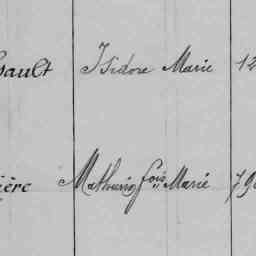 sault Isidore Marie 12
ière Mathurin fois Marie 79